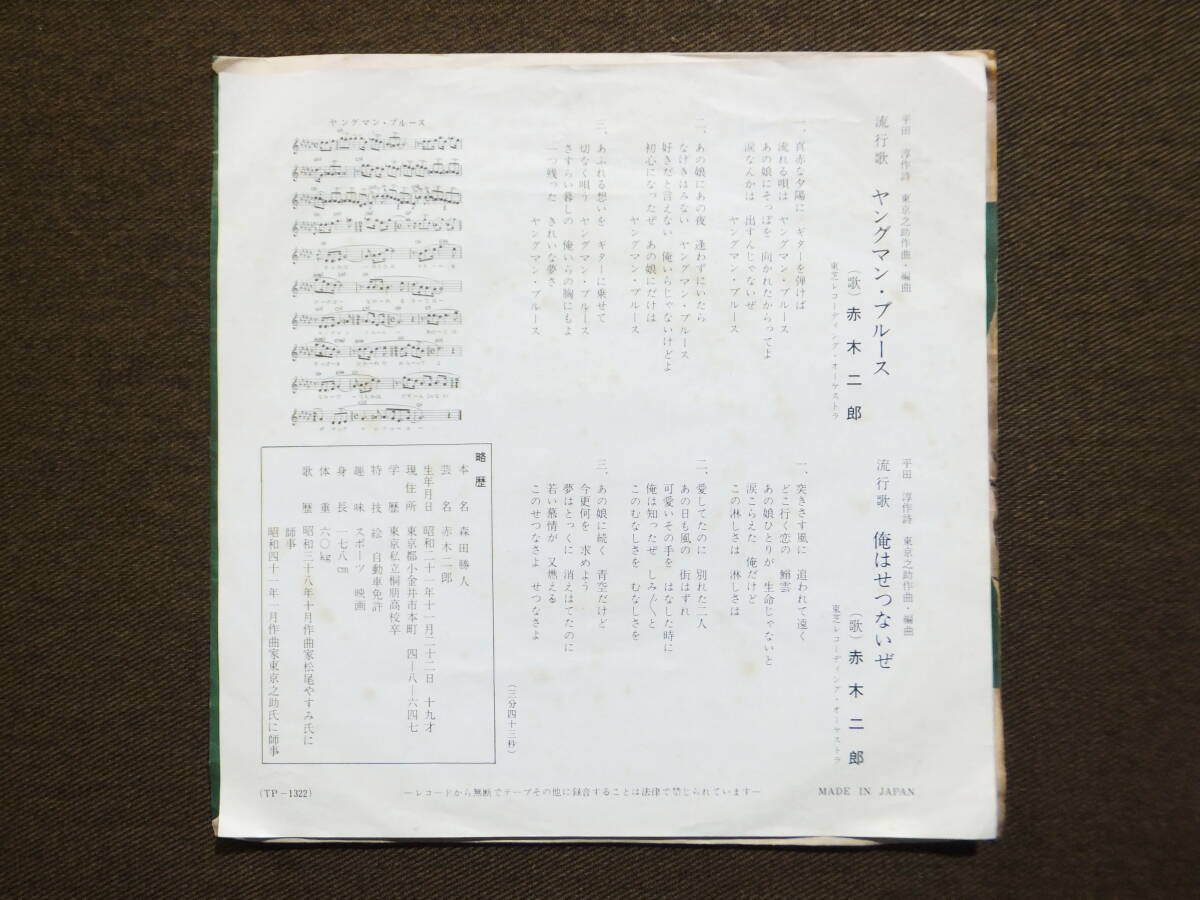 平田 淳作詩 東京之助作曲・編曲
流行歌 ヤングマン・ブルース
（歌）赤木二郎
東芝レコーディング・オーケストラ
一、真赤な夕陽に ギターを弾けば
流れる唄は ヤングマン・ブルース
あの娘にそっぽを 向かれたからってよ
涙なんかは 出すんじゃないぜ
ヤングマン・ブルース
二、あの娘にあの夜 逢わずにいたら
なげきはみない ヤングマン・ブルース
好きだと言えない 俺いらじゃないけどよ
初心になったぜ あの娘にだけは
ヤングマン・ブルース
三、あふれる想いを ギターに乗せて
切なく唄う ヤングマン・ブルース
さすらい暮しの 俺いらの胸にもよ
一つ残った きれいな夢さ
ヤングマン・ブルース
ヤングマン・ブルース
平田 淳作詩 東京之助作曲・編曲
流行歌 俺はせつないぜ
（歌）赤木二郎
東芝レコーディング・オーケストラ
一、突きさす風に 追われて遠く
どこ行く恋の 鰯雲
あの娘ひとりが 生命じゃないと
涙こらえた 俺だけど
この淋しさは 淋しさは
二、愛してたのに 別れた二人
あの日も風の 街はずれ
可愛いその手を はなした時に
俺は知ったぜ しみ〴〵と
このむなしさを むなしさを
三、あの娘に続く 青空だけど
今更何を 求めよう
夢はとっくに 消えはてたのに
若い慕情が 又燃える
このせつなさよ せつなさよ
（三分四十三秒）
略歴
本名 森田勝人
芸名 赤木二郎
生年月日 昭和二十一年十一月二十二日 十九才
現住所 東京都小金井市本町 四―八―六四七
学歴 東京私立桐朋高校卒
特技 絵 自動車免許
趣味 スポーツ 映画
身長 一七八cm
体重 六〇kg
歌歴 昭和三十八年十月作曲家松尾やすみ氏に
師事
昭和四十一年一月作曲家東京之助氏に師事
(TP-1322)
―レコードから無断でテープその他に録音することは法律で禁じられています―
MADE IN JAPAN